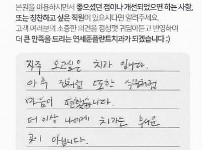 본원을 이용하시면서 좋으셨던 점이나 개선되었으면 하는 사항,
또는 칭찬하고 싶은 직원이 있으시다면 알려주세요.
고객 여러분의 소중한 의견을 겸허한 귀담아듣고 반영하여
더 큰 만족을 드리는 연세플란트치과가 되겠습니다 :)
오로실은 치가 입니다
아주 친절해 또한 수월하게
마음이 편했습니다.
더 이상 나에게 치가는 무서운
곳이 아닙니다.